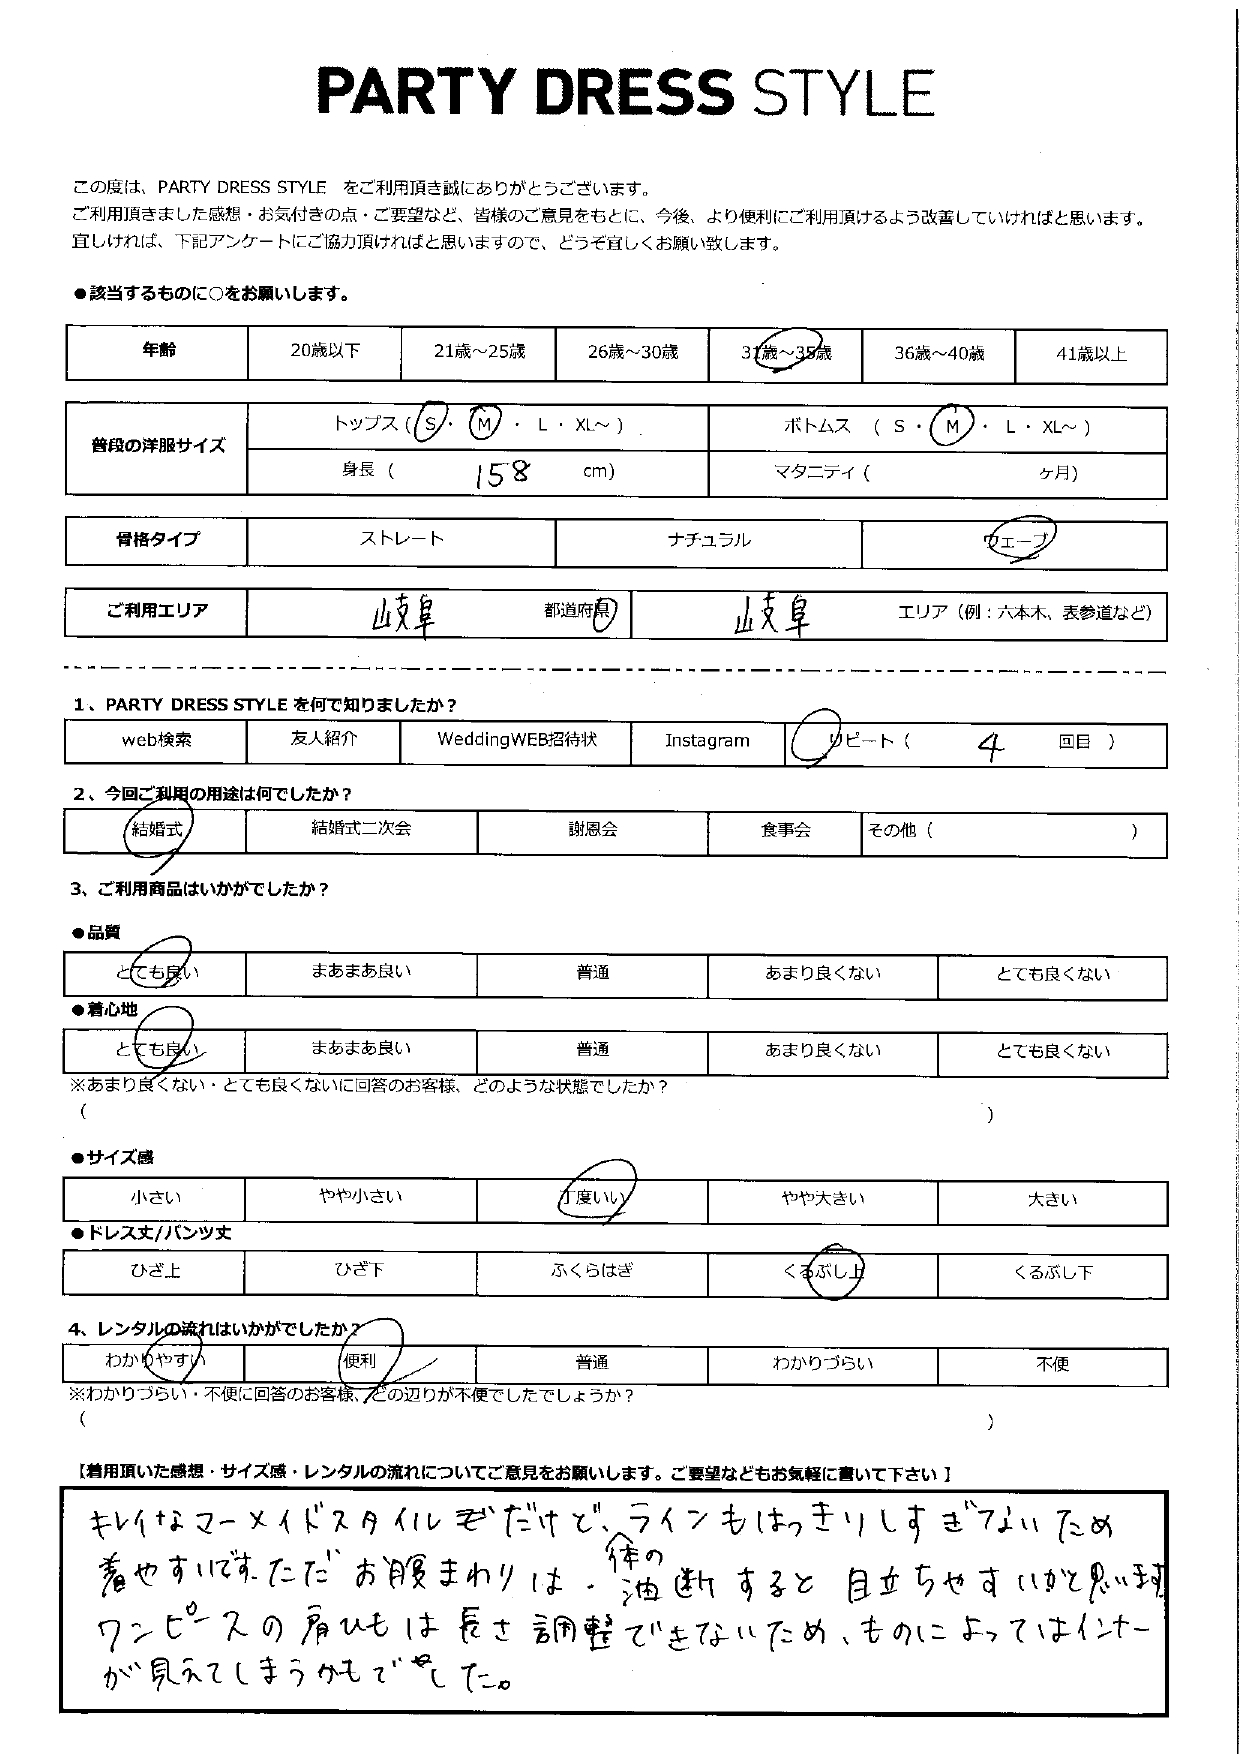 PARTY DRESS STYLE
この度は、PARTY DRESS STYLE をご利用頂き誠にありがとうございます。
ご利用頂きました感想・お気付きの点・ご要望など、皆様のご意見をもとに、今後、より便利にご利用頂けるよう改善していければと思います。
宜しければ、下記アンケートにご協力頂ければと思いますので、どうぞ宜しくお願い致します。
●該当するものに○をお願いします。
年齢 20歳以下 21歳～25歳 26歳～30歳 31歳～35歳 36歳～40歳 41歳以上
普段の洋服サイズ トップス ( S ・ M ・ L ・ XL～ ) ボトムス ( S ・ M ・ L ・ XL～ )
身長 ( 158 cm) マタニティ ( ヶ月)
骨格タイプ ストレート ナチュラル ウェーブ
ご利用エリア 岐阜 都道府県 岐阜 エリア (例：六本木、表参道など)
1、PARTY DRESS STYLE を何で知りましたか？
web検索 友人紹介 WeddingWEB招待状 Instagram リピート ( 4 回目 )
2、今回ご利用の用途は何でしたか？
結婚式 結婚式二次会 謝恩会 食事会 その他 ( )
3、ご利用商品はいかがでしたか？
●品質
とても良い まあまあ良い 普通 あまり良くない とても良くない
●着心地
とても良い まあまあ良い 普通 あまり良くない とても良くない
※あまり良くない・とても良くないに回答のお客様、どのような状態でしたか？
( )
●サイズ感
小さい やや小さい 丁度いい やや大きい 大きい
●ドレス丈/パンツ丈
ひざ上 ひざ下 ふくらはぎ くるぶし上 くるぶし下
4、レンタルの流れはいかがでしたか？
わかりやすい 便利 普通 わかりづらい 不便
※わかりづらい・不便に回答のお客様、どの辺りが不便でしたでしょうか？
( )
【着用頂いた感想・サイズ感・レンタルの流れについてご意見をお願いします。ご要望などもお気軽に書いて下さい】
キレイなマーメイドスタイルだけど、ラインもはっきりしすぎてないため
着やすいです。ただお腹まわりは、体の油断すると目立ちやすいかと思います
ワンピースの肩ひもは長さ調整できないため、ものによってはインナー
が見えてしまうかもでした。